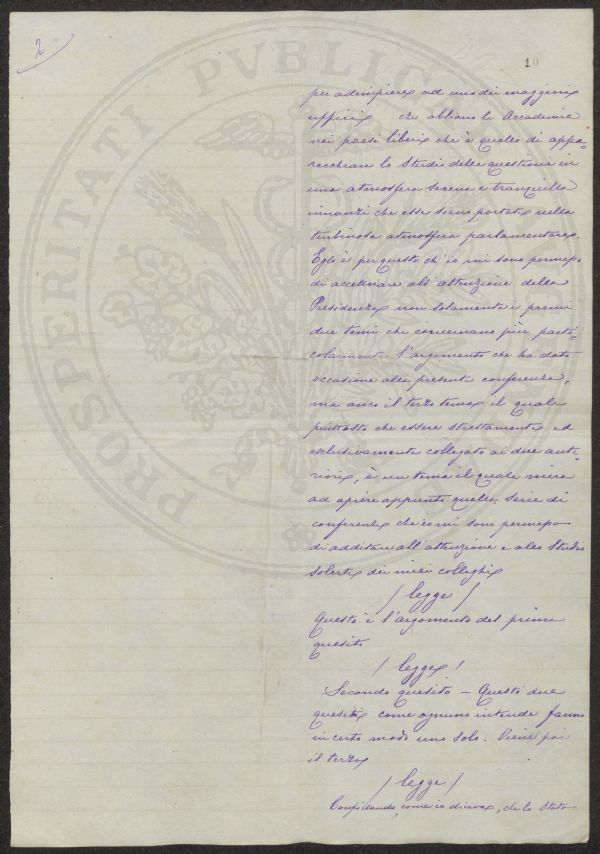 2
10
per adempiere ad uno dei maggiori
ufficii che abbiano le Accademie
nei paesi liberi che è quello di appa=
recchiare lo Studio delle questioni in
una atmosfera serena e tranquilla
innanzi che esse sieno portate nella
turbinosa atmosfera parlamentare.
Egli è per questo ch'io mi sono permesso
di accennare all'attenzione della
Presidenza non solamente i primi
due temi che concernano più parti=
colarmente l'argomento che ha dato
occasione alla presente conferenza,
ma anco il terzo tema il quale
piuttosto che essere strettamente ed
esclusivamente collegato ai due ante=
riori, è un tema il quale mira
ad aprire appunto quella serie di
conferenze che io mi sono permesso
di additare all'attenzione e allo Studio
solerte dei miei colleghi
/ legge /
Questo è l'argomento del primo
quesito
/ legge /
Secondo quesito — Questi due
quesiti come ognuno intende fanno
in certo modo uno solo. Viene poi
il terzo
/ legge /
Confidando, come io diceva, che lo Stato
PROSPERITATI PVBLICAE